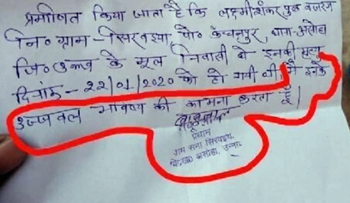 प्रमाणित किया जाता है कि लक्ष्मीशंकर पुत्र बजरंग
नि० ग्राम- सिरवइया पो० कंचनपुर, थाना-असोहा
जि० उन्नाव के मूल निवासी थे इनकी मृत्यु
दिनांक- 22/01/2020 को हो गयी थी मै इनके
उज्ज्वल भविष्य की कामना करता हूँ।
प्रधान
ग्राम सभा सिरवइया
उन्नाव